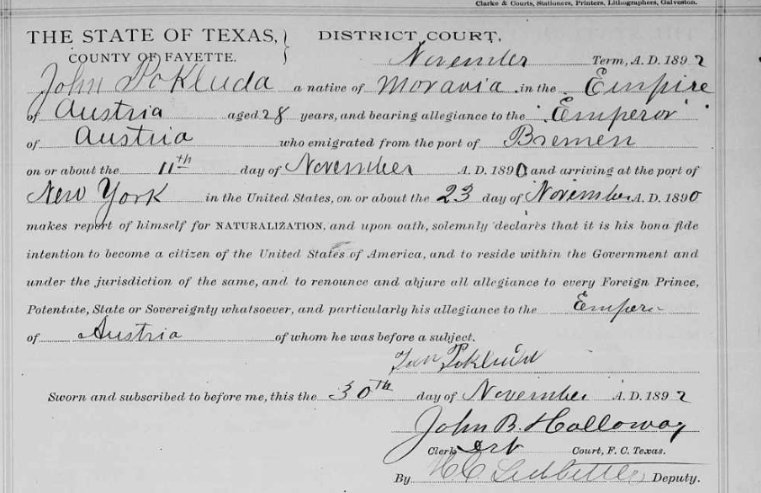 Clarke & Courts, Stationers, Printers, Lithographers, Galveston.
THE STATE OF TEXAS, } DISTRICT COURT,
COUNTY OF FAYETTE. November Term, A. D. 1892
John Pokluda a native of Moravia in the Empire
of Austria aged 28 years, and bearing allegiance to the Emperor
of Austria who emigrated from the port of Bremen
on or about the 11th day of November A. D. 1890 and arriving at the port of
New York in the United States, on or about the 23 day of November A. D. 1890
makes report of himself for NATURALIZATION, and upon oath, solemnly declares that it is his bona fide
intention to become a citizen of the United States of America, and to reside within the Government and
under the jurisdiction of the same, and to renounce and abjure all allegiance to every Foreign Prince,
Potentate, State or Sovereignty whatsoever, and particularly his allegiance to the Emperor
of Austria of whom he was before a subject.
Jan Pokluda
Sworn and subscribed to before me, this the 30th day of November A. D. 1892
John B. Holloway
Clerk Court, F. C. Texas.
By Ledbetter Deputy.